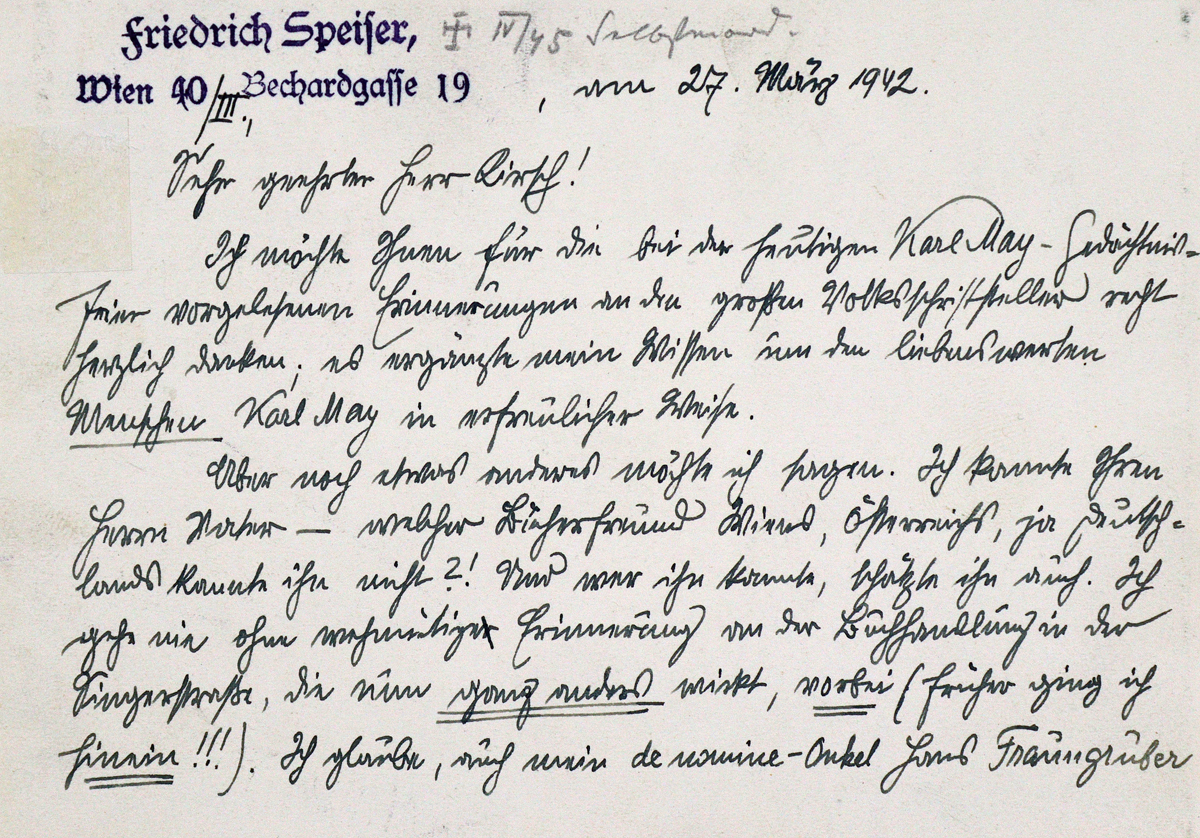 Friedrich Speiser, ✝ IV/45 Selbstmord.
Wien 40/III., Bechardgasse 19 , am 27. März 1942.
Sehr geehrter Herr Kirsch!
Ich möchte Ihnen für die bei der heutigen Karl May-Gedächtnis-
feier vorgelesenen Erinnerungen an den großen Volksschriftsteller recht
herzlich danken; es ergänzte mein Wissen um den liebenswerten
Menschen Karl May in erfreulicher Weise.
Aber noch etwas anderes möchte ich sagen. Ich kannte Ihren
Herrn Vater — welcher Bücherfreund Wiens, Österreichs, ja Deutsch-
lands kannte ihn nicht?! Und wer ihn kannte, schätzte ihn auch. Ich
gehe nie ohne wehmütige Erinnerung an der Buchhandlung in der
Singerstraße, die nun ganz anders wirkt, vorbei (früher ging ich
hinein!!!). Ich glaube, auch mein de nomine-Onkel Hans Fraungruber